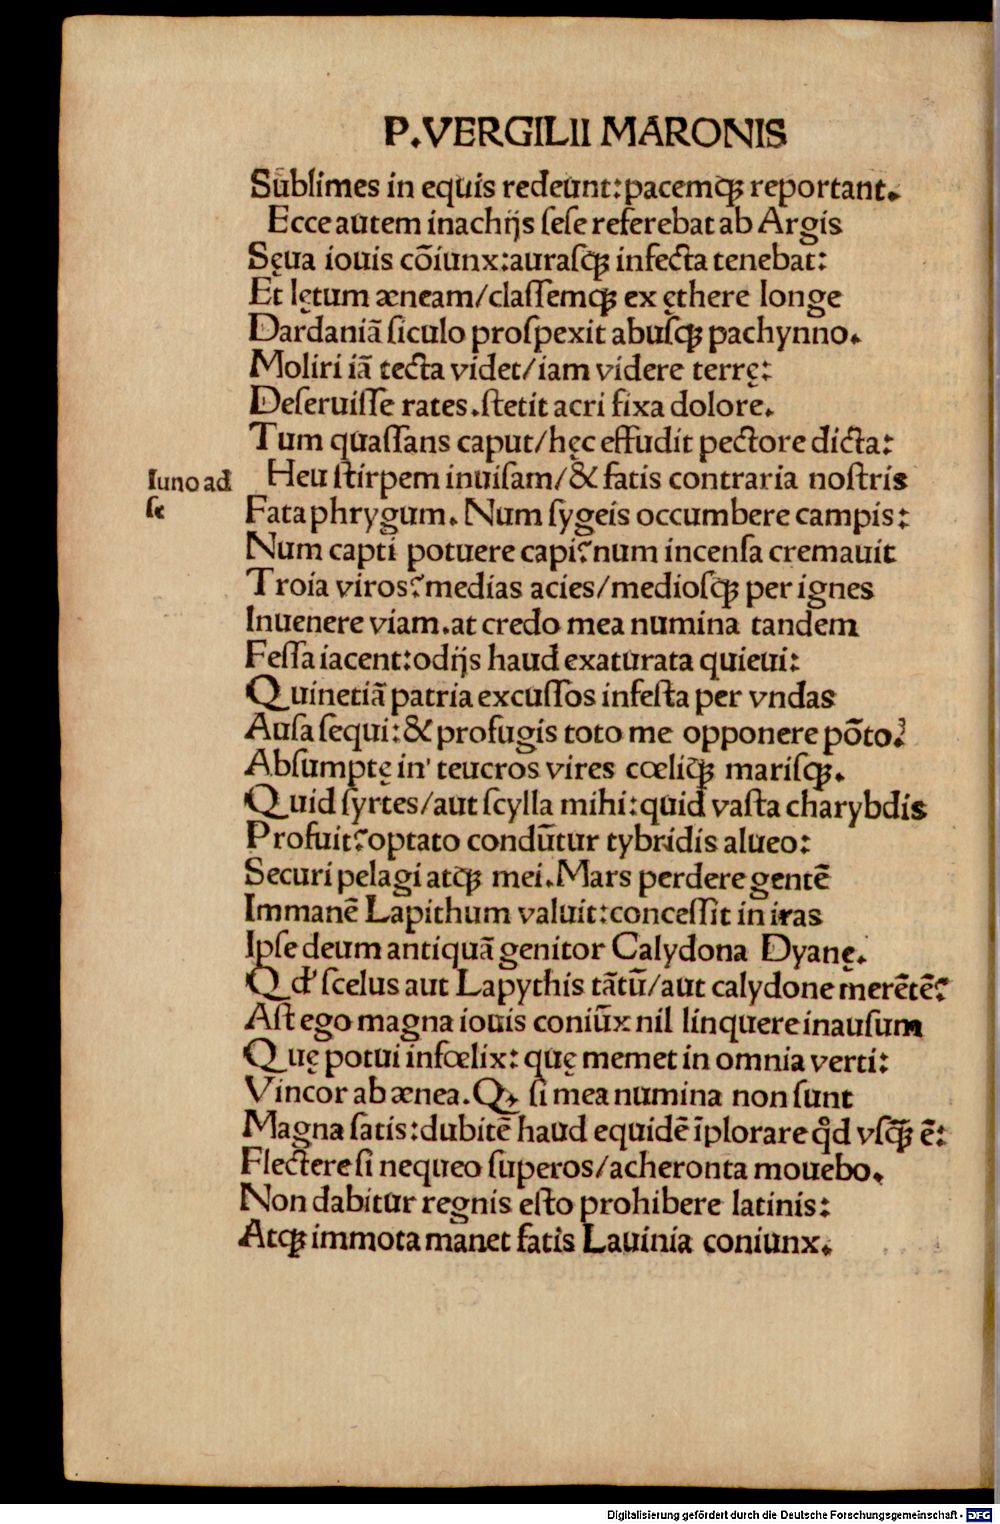 P.VERGILII MARONIS
Sūblimes in equis redeunt:pacemqꝫ reportant.
Ecce autem inachijs sese referebat ab Argis
Sęua iouis cōiunx:aurasqꝫ infecta tenebat:
Et lętum æneam/classemqꝫ ex ęthere longe
Dardaniā siculo prospexit abusqꝫ pachynno.
Moliri iā tecta videt/iam videre terrę:
Deseruisse rates.stetit acri fixa dolore.
Tum quassans caput/hęc effudit pectore dicta:
Iuno ad
se
Heu stirpem inuisam/& fatis contraria nostris
Fata phrygum. Num sygeis occumbere campis:
Num capti potuere capi?num incensa cremauit
Troia viros?medias acies/mediosqꝫ per ignes
Inuenere viam.at credo mea numina tandem
Fessa iacent:odijs haud exaturata quieui:
Quinetiā patria excussos infesta per vndas
Ausa sequi:& profugis toto me opponere pōto?
Absumptę in' teucros vires cœliqꝫ marisqꝫ.
Quid syrtes/aut scylla mihi:quid vasta charybdis
Profuit?optato condūtur tybridis alueo:
Securi pelagi atqꝫ mei.Mars perdere gentē
Immanē Lapithum valuit:concessit in iras
Ipse deum antiquā genitor Calydona Dyanę.
Qd' scelus aut Lapythis tātū/aut calydone merētē?
Ast ego magna iouis coniūx nil linquere inausum
Quę potui infœlix: quę memet in omnia verti:
Vincor ab ænea.Qꝫ si mea numina non sunt
Magna satis:dubitē haud equidē īplorare qd vsqꝫ ē:
Flectere si nequeo superos/acheronta mouebo.
Non dabitur regnis esto prohibere latinis:
Atqꝫ immota manet fatis Lauinia coniunx.
Digitalisierung gefördert durch die Deutsche Forschungsgemeinschaft - DFG